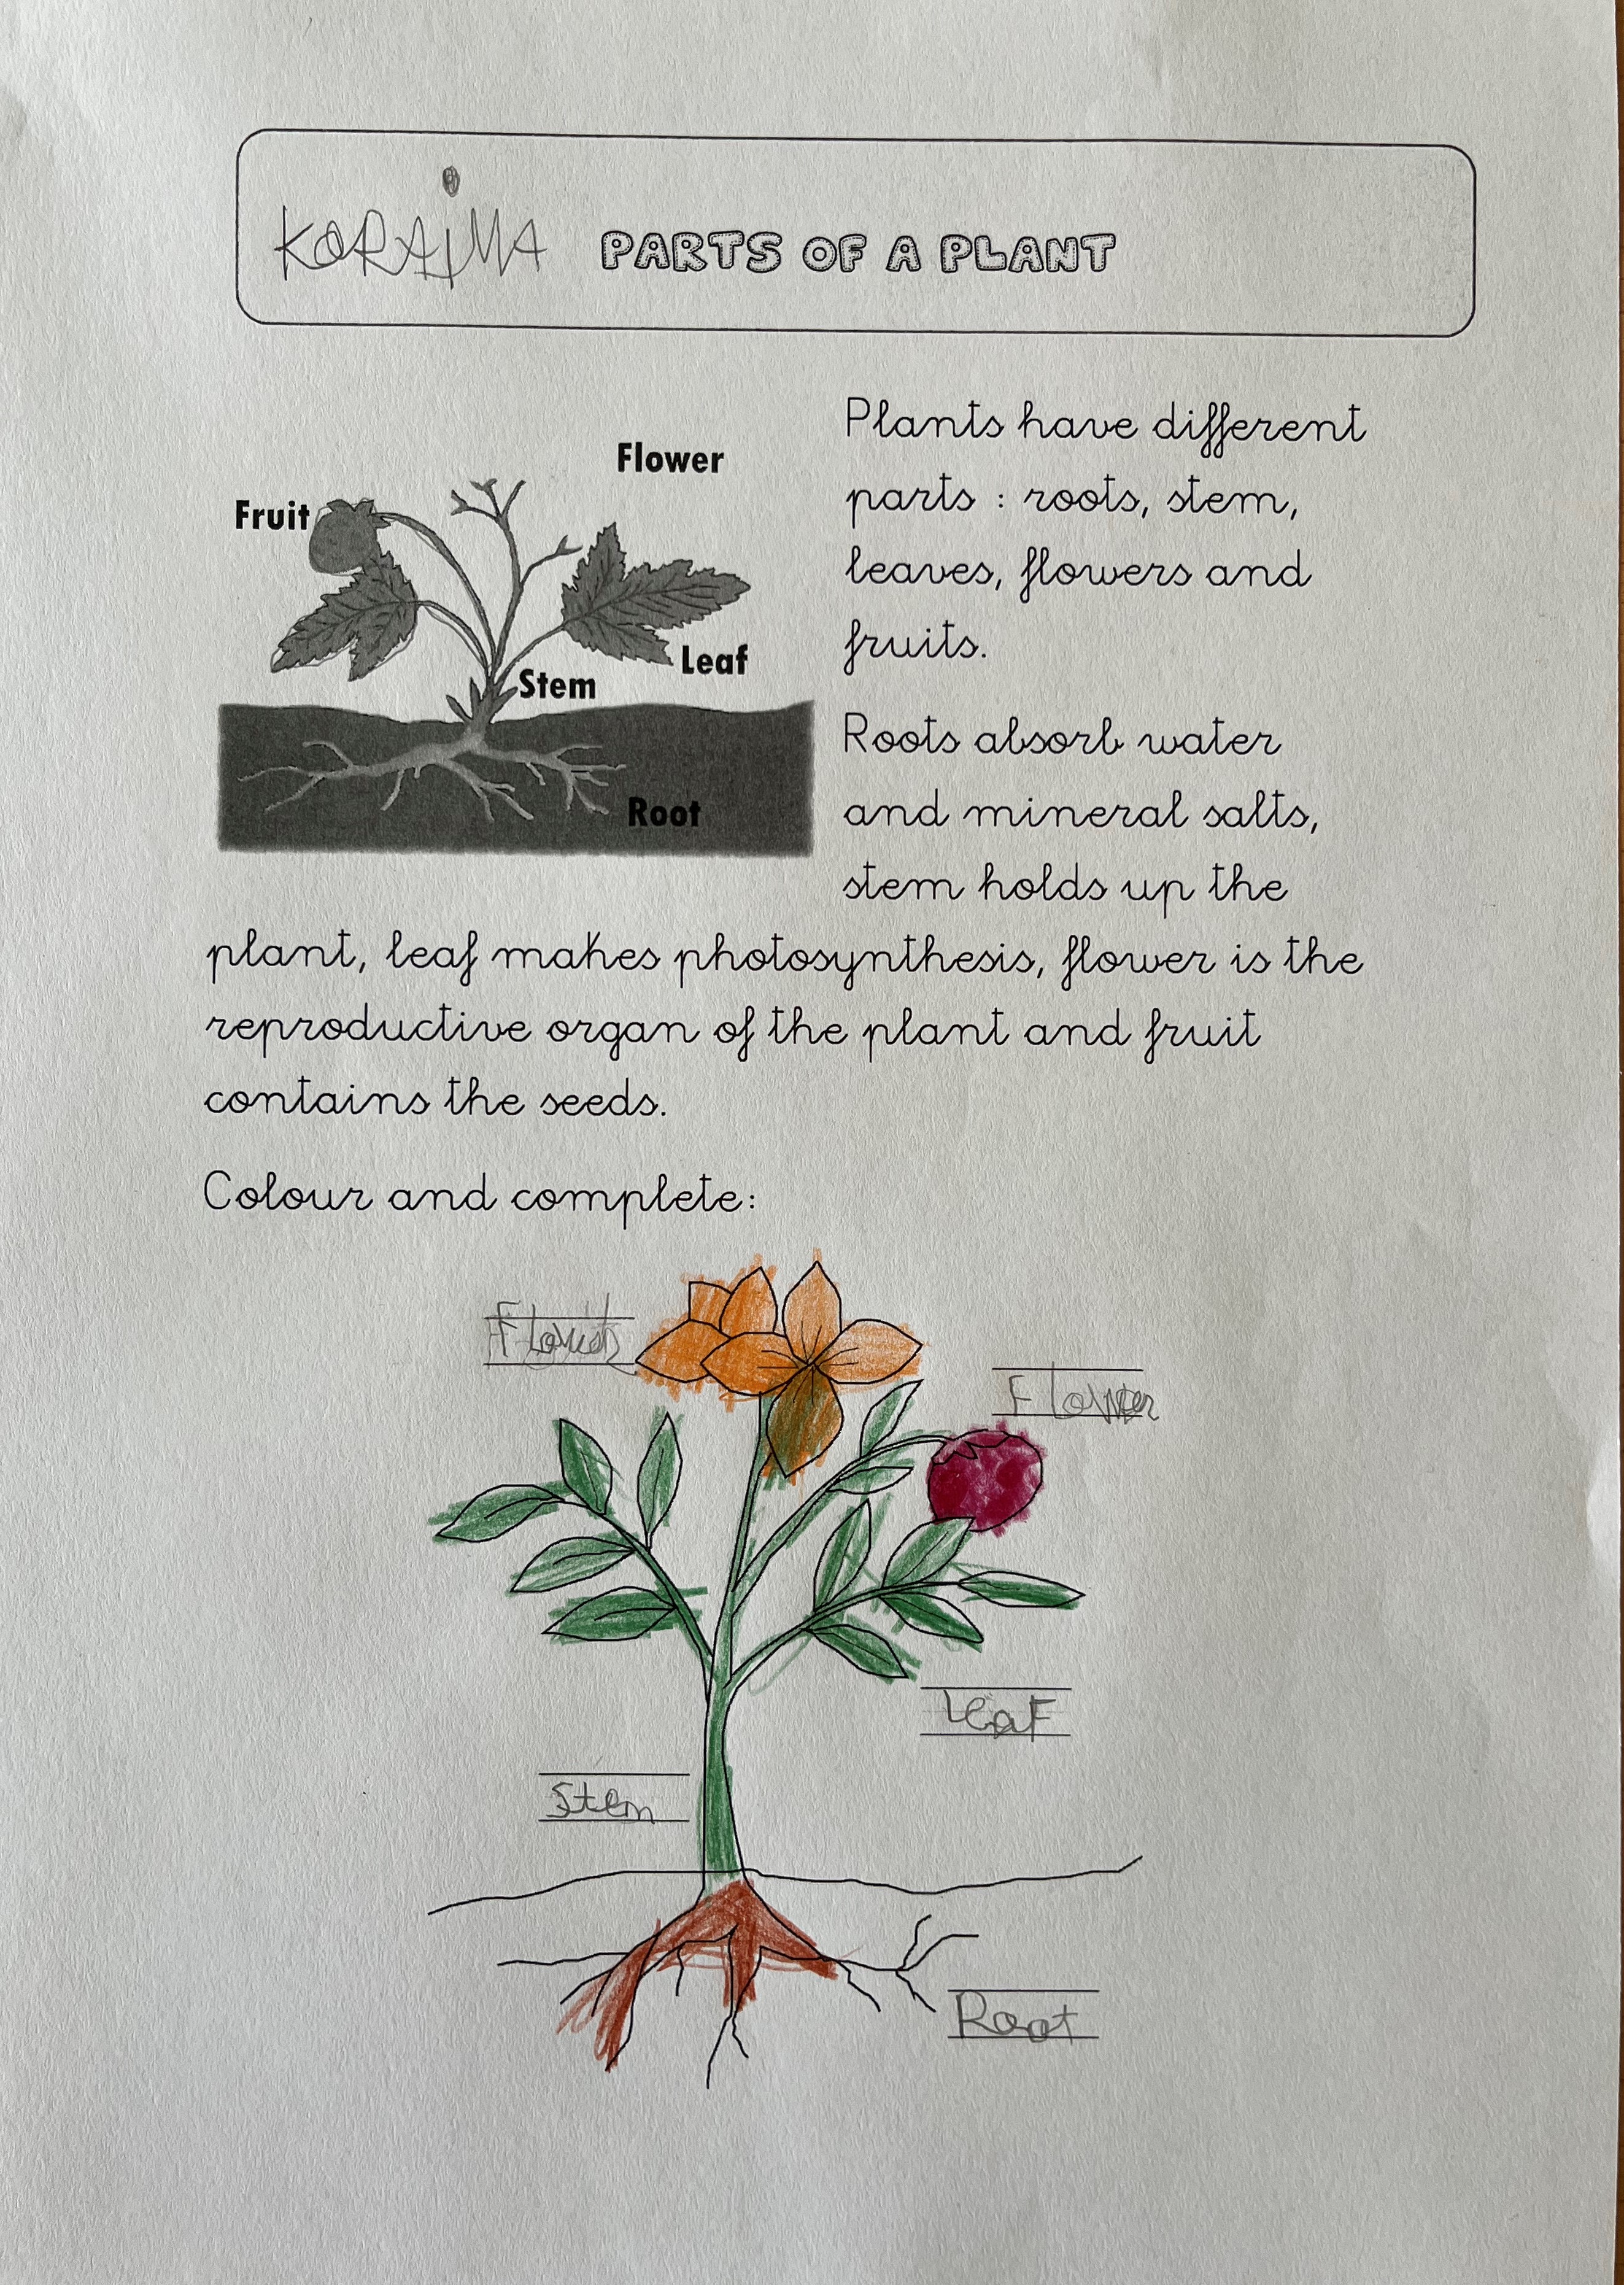 KORAiMA PARTS OF A PLANT
Flower
Fruit
Leaf
Stem
Root
Plants have different
parts : roots, stem,
leaves, flowers and
fruits.
Roots absorb water
and mineral salts,
stem holds up the
plant, leaf makes photosynthesis, flower is the
reproductive organ of the plant and fruit
contains the seeds.
Colour and complete:
Flower
Leaf
Stem
Root